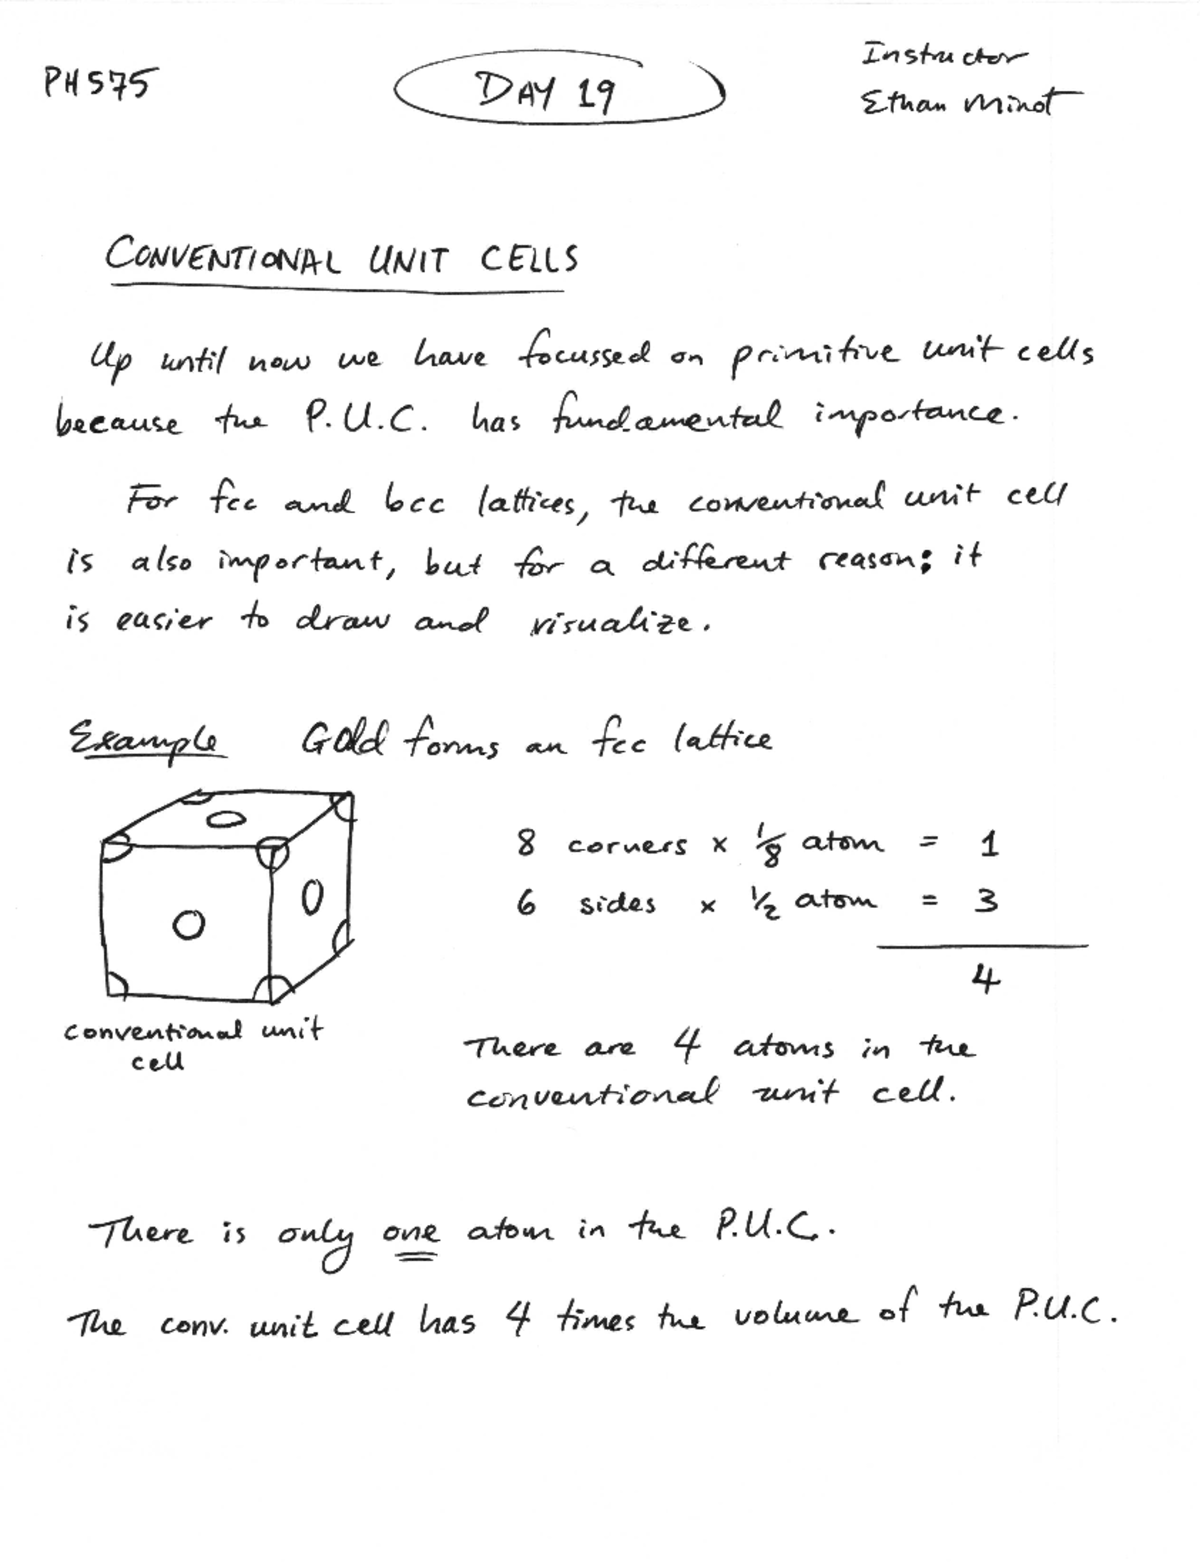 PH575
DAY 19
Instructor
Ethan Minot
CONVENTIONAL UNIT CELLS
Up until now we have focussed on primitive unit cells
because the P.U.C. has fundamental importance.
For fcc and bcc lattices, the conventional unit cell
is also important, but for a different reason; it
is easier to draw and visualize.
Example Gold forms an fcc lattice
8 corners x 1/8 atom = 1
6 sides x 1/2 atom = 3
4
conventional unit
cell
There are 4 atoms in the
conventional unit cell.
There is only one atom in the P.U.C.
The conv. unit cell has 4 times the volume of the P.U.C.